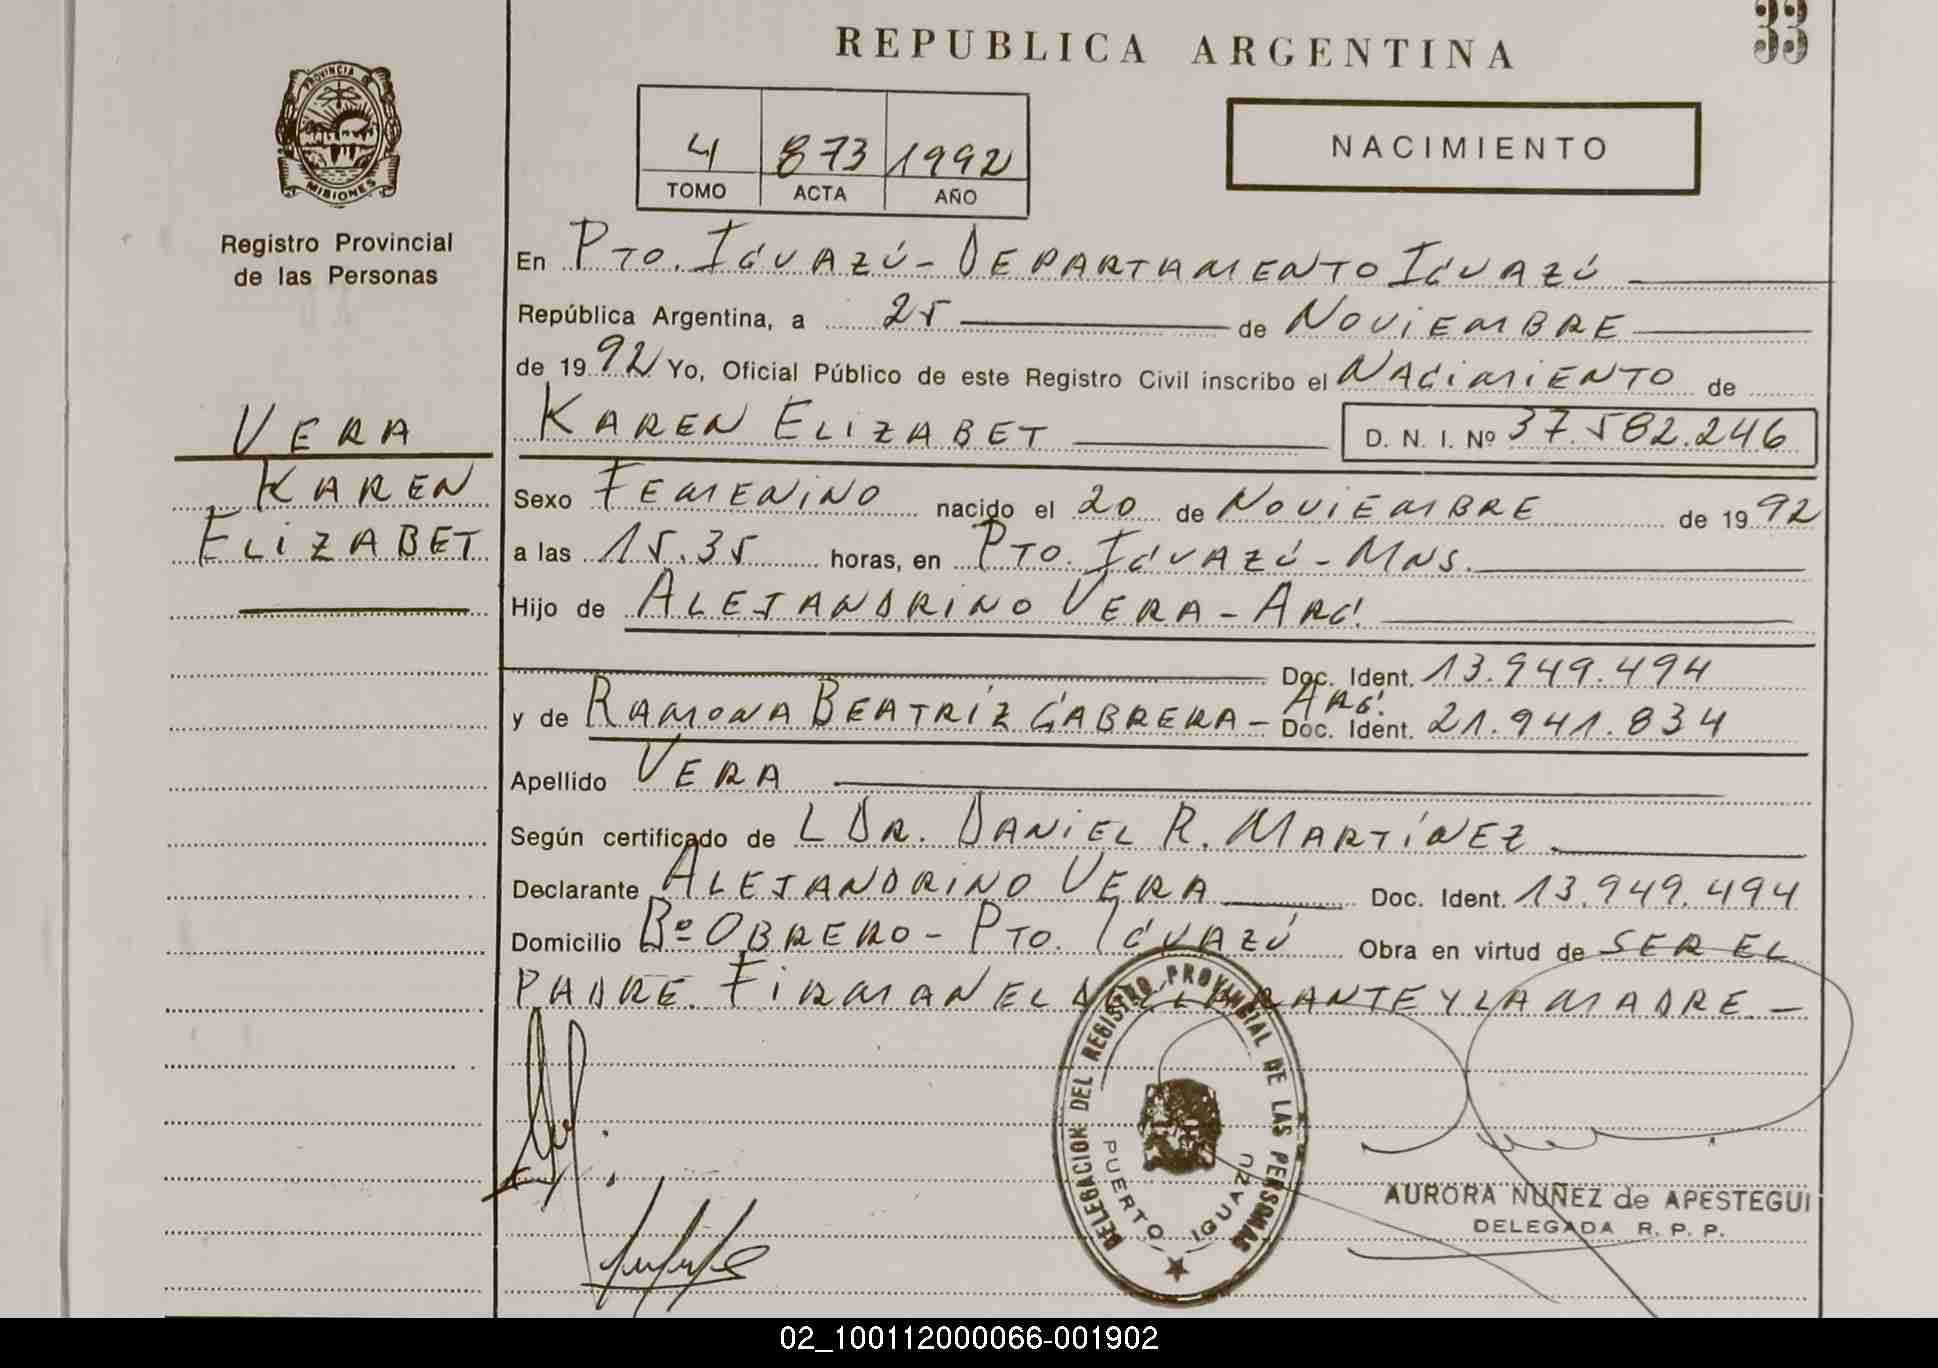 REPUBLICA ARGENTINA
33
PROVINCIA D
MISIONES
Registro Provincial
de las Personas
4 873 1992
TOMO ACTA AÑO
NACIMIENTO
En PTO. IGUAZÚ - DEPARTAMENTO IGUAZÚ
República Argentina, a 25 de NOVIEMBRE
de 1992 Yo, Oficial Público de este Registro Civil inscribo el NACIMIENTO de
KAREN ELIZABET D. N. I. Nº 37.582.246
VERA
KAREN
ELIZABET
Sexo FEMENINO nacido el 20 de NOVIEMBRE de 1992
a las 15.35 horas, en PTO. IGUAZÚ - MNS.
Hijo de ALEJANDRINO VERA - ARG.
Doc. Ident. 13.949.494
y de RAMONA BEATRÍZ GABRERA - ARG. Doc. Ident. 21.941.834
Apellido VERA
Según certificado de L DR. DANIEL R. MARTÍNEZ.
Declarante ALEJANDRINO VERA Doc. Ident. 13.949.494
Domicilio Bº OBRERO - PTO. IGUAZÚ Obra en virtud de SER EL
PADRE. FIRMAN EL DECLARANTE Y LA MADRE. -
DELEGACION DEL REGISTRO PROVINCIAL DE LAS PERSONAS
PUERTO IGUAZU
AURORA NUÑEZ de APESTEGUI
DELEGADA R. P. P.
02_100112000066-001902